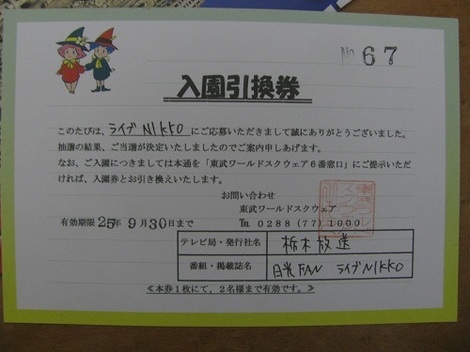 No 67
入園引換券
このたびは、ライブNIKKOにご応募いただきまして誠にありがとうございました。
抽選の結果、ご当選が決定いたしましたのでご案内申しあげます。
なお、ご入園につきましては本通を「東武ワールドスクウェア6番窓口」にご提示いただ
ければ、入園券とお引き換えいたします。
お問い合わせ
東武ワールドスクウェア
有効期限25年9月30日まで
TEL 0288(77)1000
テレビ局・発行社名 栃木放送
番組・掲載誌名 日光FAN ライブNIKKO
≪本券1枚にて、2名様まで有効です。≫